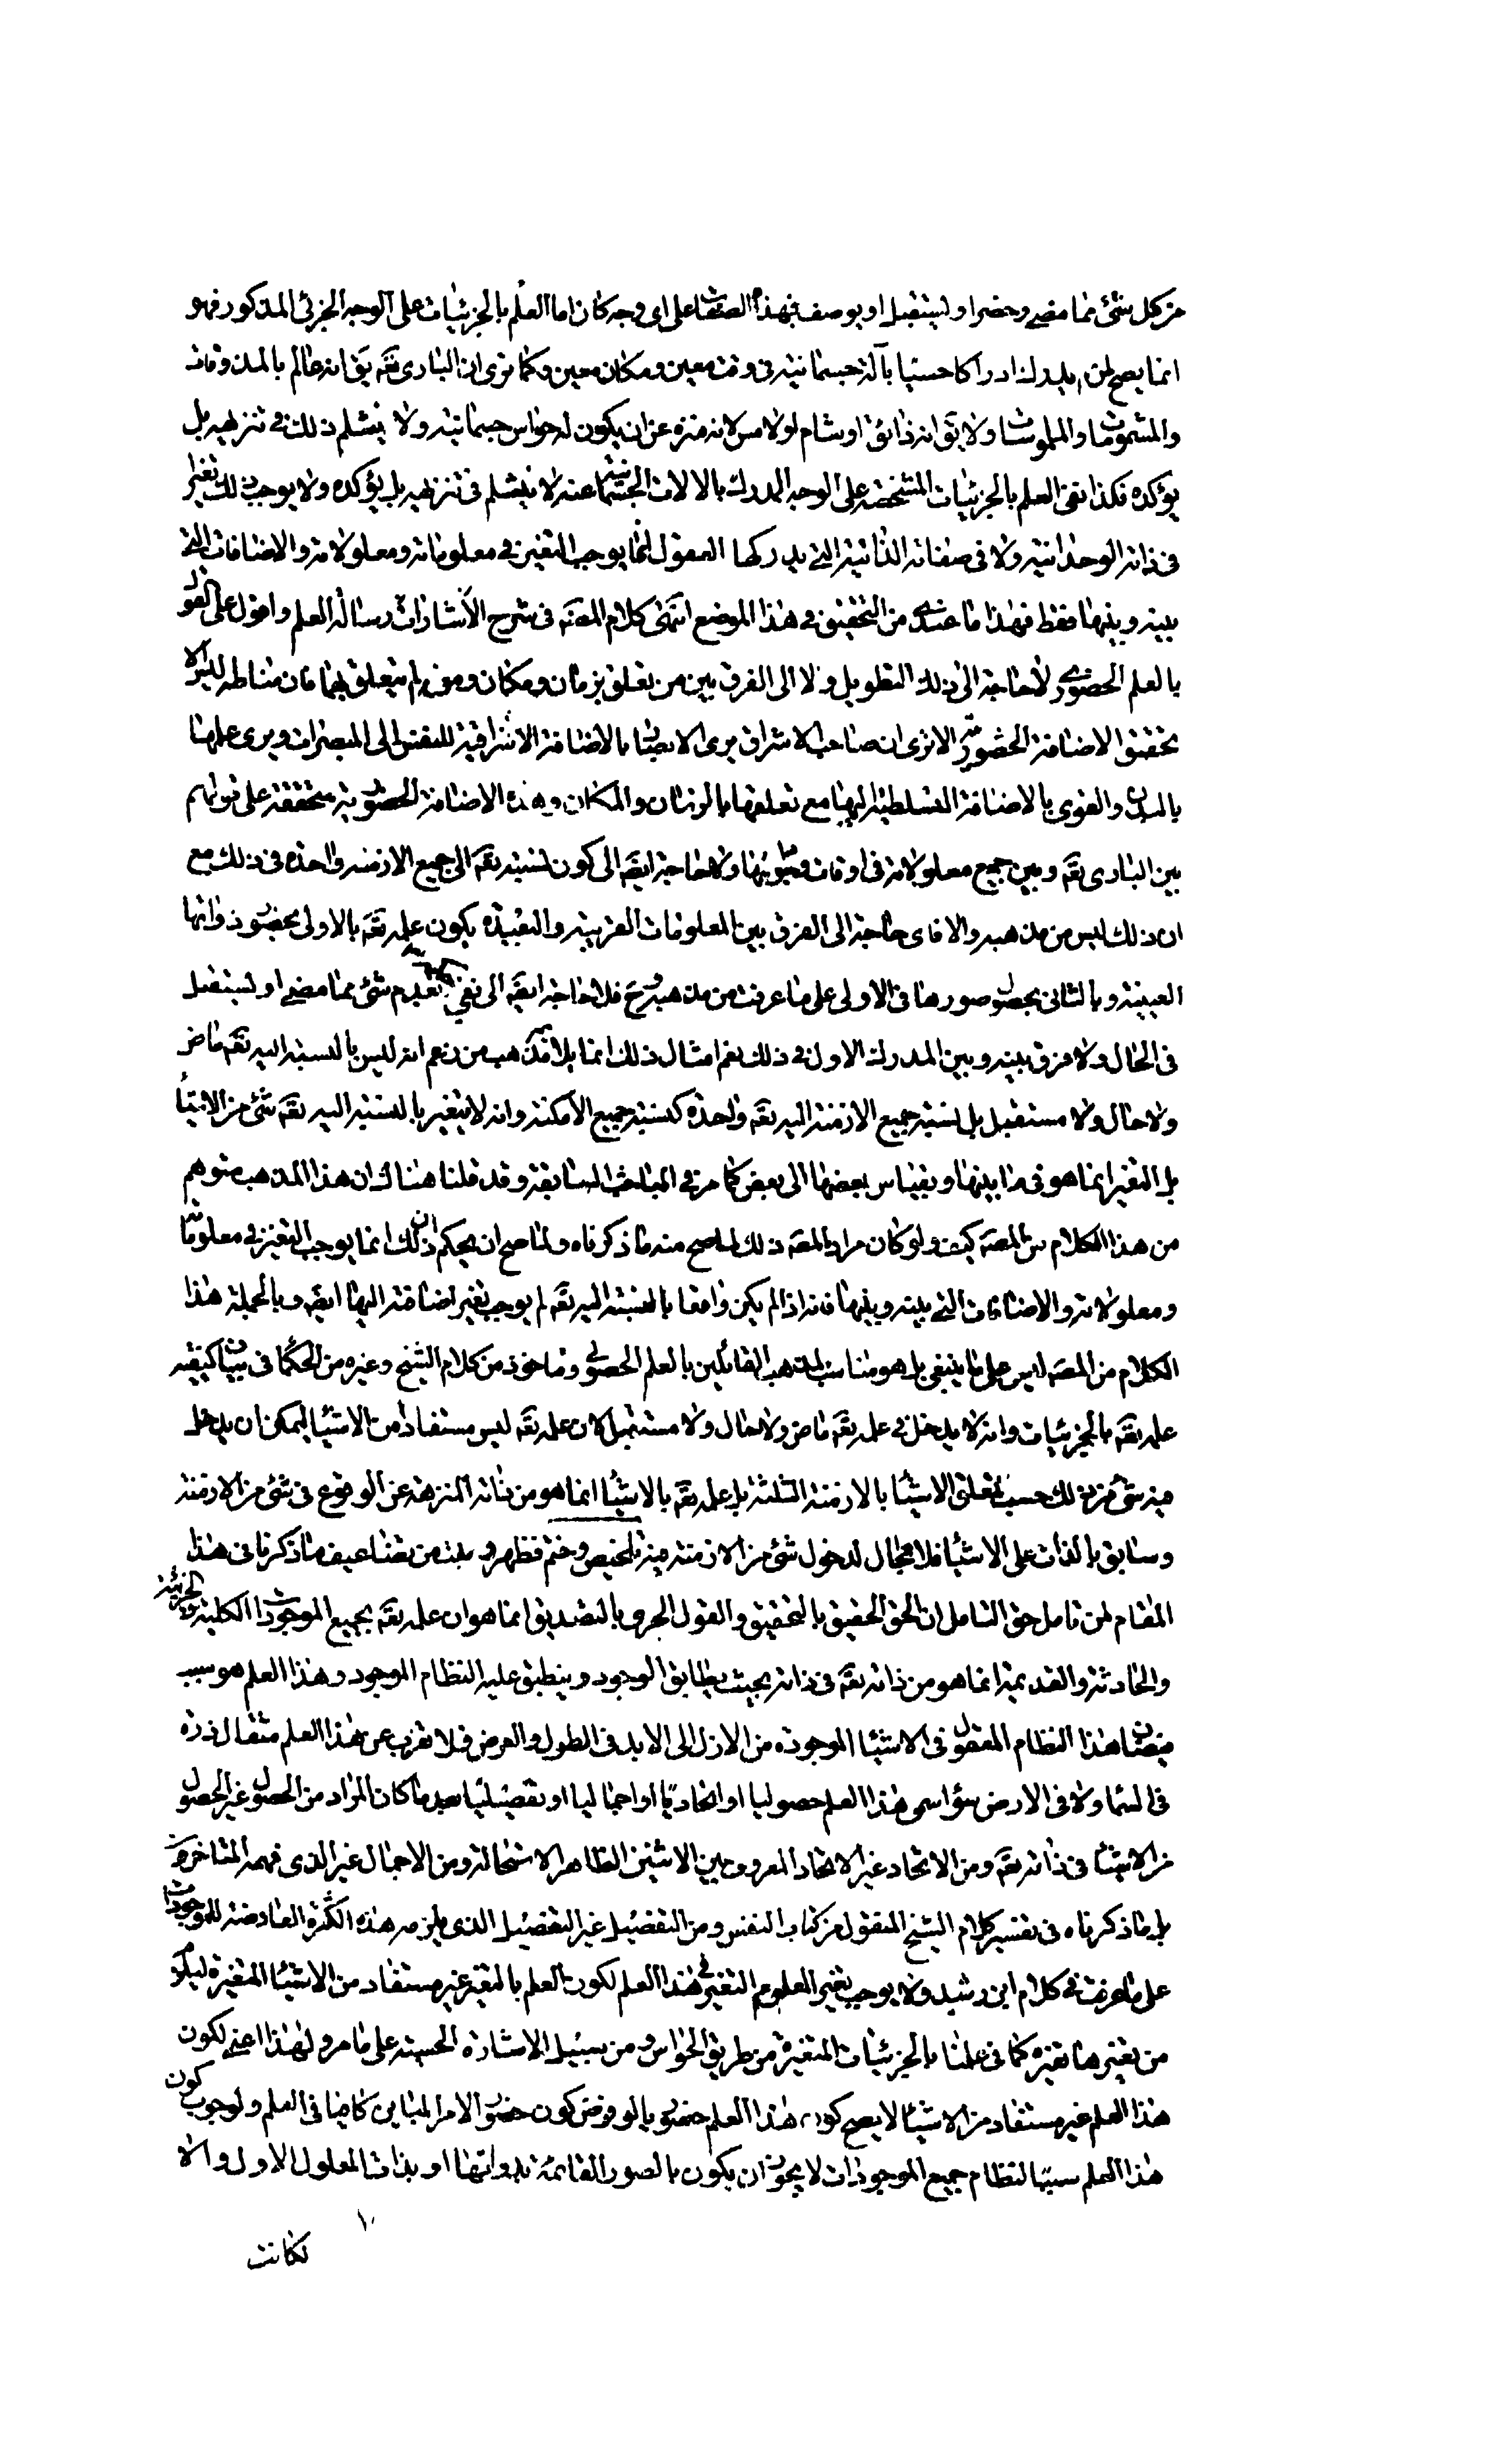 من كل شئ مما مضى وحضر او يستقبل او يوصف بهذه الصفات على اى وجه كان اما العلم بالجزئيات على الوجه الجزئى المذكور فهو
انما يصح لمن يدرك ادراكا حسيا بآلة جسمانية فى وقت معين ومكان معين وكما ترى ان البارى تعه يق انه عالم بالمذوقات
والمشمومات والملموسات ولا يق انه ذائق او شام او لامس لانه منزه عن ان يكون له حواس جسمانية ولا ينثلم ذلك فى تنزهيه بل
يؤكده فكذا نفى العلم بالجزئيات المشخصة على الوجه المدرك بالالات الجسمانية عنه لا ينثلم فى تنزهيه بل يؤكده ولا يوجب ذلك تغيرا
فى ذاته الوحدانية ولا فى صفاته الذاتية التى يدركها العقول انما يوجب التغير فى معلوماته ومعلولاته والاضافات التى
بينه وبينها فقط فهذا ما عندى من التحقيق فى هذا الموضع انتهى كلام المصنه فى شرح الاشارات ورسالة العلم واقول على القول
بالعلم الحضورى لا حاجة الى ذلك التطويل ولا الى الفرق بين من تعلق بزمان ومكان ومن لم يتعلق بهما فان مناطه ليس الا
تحقق الاضافة الحضورية الا ترى ان صاحب الاشراق يرى الابصار بالاضافة الاشراقية للنفس الى المبصرات ويرى علمها
بالبدن والقوى بالاضافة التسلطية اليها مع تعلقها بالزمان والمكان وهذه الاضافة الحضورية متحققة على قولهم
بين البارى تعه وبين جميع معلولاته فى اوقات وجوبها ولا حاجة ايضه الى كون نسبته تعه الى جميع الازمنه واحدة فى ذلك مع
ان ذلك ليس من مذهبه والا فاى حاجة الى الفرق بين المعلومات القريبة والبعيدة بكون علمه تعه بالاولى بحضور ذواتها
العينية وبالثانى بحصول صورها فى الاولى على ما عرفت من مذهبه وح فلا حاجة ايضه الى نفى عدم شئ مما مضى او يستقبل
فى الحال ولا فرق بينه وبين المدرك الاول فى ذلك نعم امثال ذلك انما يلائم مذهب من زعم انه ليس بالنسبة اليه تعه ماض
ولا حال ولا مستقبل بل نسبة جميع الازمنة اليه تعه واحدة كنسبة جميع الامكنة وانه لا يتغير بالنسبة اليه تعه شئ من الاشياء
بل التغير انما هو فى ما بينها وبقياس بعضها الى بعض كما مر فى المباحث السابقة وقد قلنا هناك ان هذا المذهب متوهم
من هذا الكلام من المصه كيف ولو كان مراد المصه ذلك لما صح منه ما ذكرناه ولما صح ان يحكم ان ذلك انما يوجب التغير فى معلوماته
ومعلولاته والاضافات التى بينه وبينها فانه اذا لم يكن واقعا بالنسبة اليه تعه لم يوجب تغير اضافته اليها ايضه وبالجملة هذا
الكلام من المصه ليس على ما ينبغى بل هو مناسب لمذهب القائلين بالعلم الحصولى وماخوذ من كلام الشيخ وغيره من الحكما فى بيان كيفية
علمه تعه بالجزئيات وانه لا يدخل فى علمه تعه ماض ولا حال ولا مستقبل لان علمه تعه ليس مستفادا من الاشيا ليمكن ان يدخل
فيه شئ من ذلك حسب تعلق الاشيا بالازمنة الثلثة بل علمه تعه بالاشيا انما هو من ذاته المنزهة عن الوقوع فى شئ من الازمنة
وسابق بالذات على الاشيا فلا مجال لدخول شئ من الازمنة فيه تلخيص وختم فظهر من تضاعيف ما ذكرنا فى هذا
المقام لمن تامل حق التامل ان الحق الحقيق بالتحقيق والقول الحرى بالتصديق انما هو ان علمه تعه بجميع الموجودات الكلية والجزئية
والحادثة والقديمة انما هو من ذاته تعه فى ذاته بحيث يطابق الوجود وينطبق عليه النظام الموجود وهذا العلم هو سبب
فيضان هذا النظام المعقول فى الاشيا الموجودة من الازل الى الابد فى الطول والعرض فلا يعزب عن هذا العلم مثقال ذرة
فى السما ولا فى الارض سؤا سمى هذا العلم حصوليا او اتحاديا او اجماليا او تفصيليا بعد ما كان المراد من الحصول غير الحصول
من الاشيا فى ذاته تعه ومن الاتحاد غير الاتحاد المعروف بين الاثنين الظاهر الاستحالة ومن الاجمال غير الذى فهمه المتاخرون
بل ما ذكرناه فى تفسير كلام الشيخ المنقول من كتاب النفس ومن التفصيل غير التفصيل الذى يلزمه هذه الكثرة العارضة للموجودات
على ما عرفت فى كلام ابن رشد ولا يوجب تغير المعلوم التغير فى هذا العلم لكون العلم بالمتغير غير مستفاد من الاشيا المتغيرة ليكون
من تغيرها تغيره كما فى علمنا بالجزئيات المتغيرة من طريق الحواس ومن سبيل الاشارة الحسية على ما مر ولهذا اعنى لكون
هذا العلم غير مستفاد من الاشيا لا يصح كون هذا العلم حضوريا لو فرض كون حضور الامر المباين كافيا فى العلم ولوجوب كون
هذا العلم سببا لنظام جميع الموجودات لا يجوز ان يكون بالصور القائمة بذواتها او بذات المعلول الاول والا
لكانت